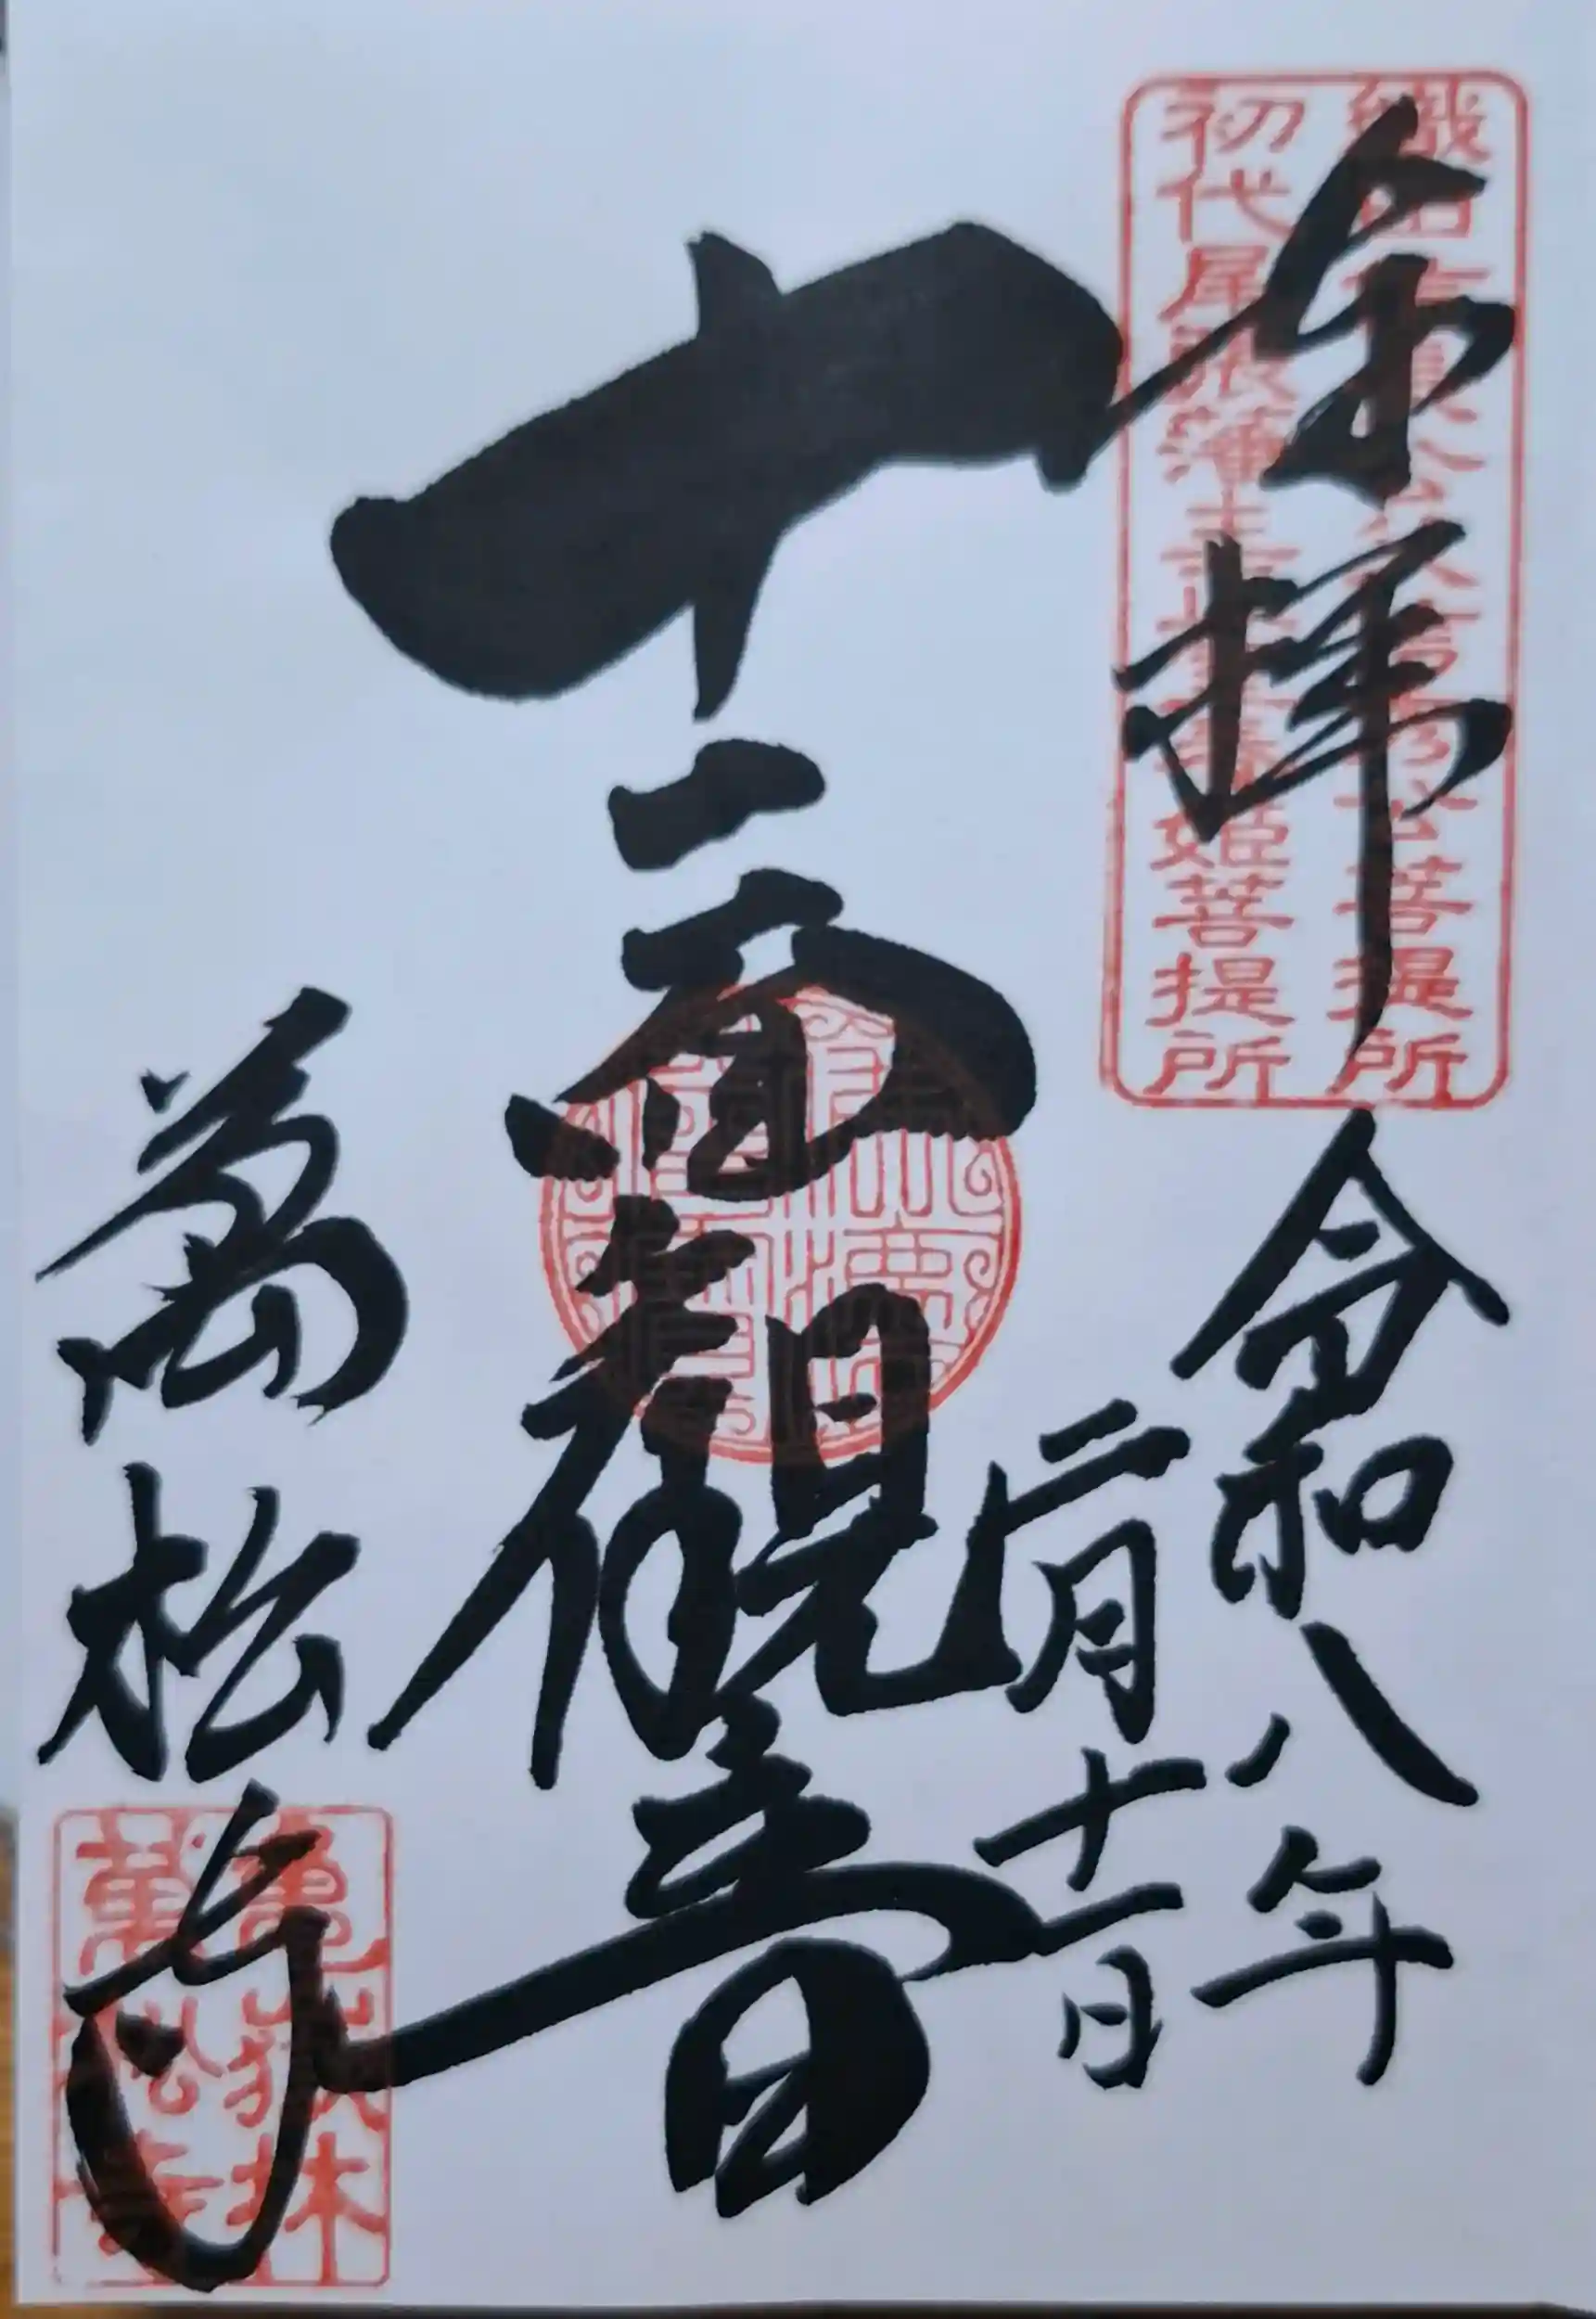 奉拝
織田信長公父信秀公菩提所
初代尾張藩主正室春姫菩提所
令和八年
二月十一日
十一面観音
萬松寺
亀嶽林
萬松寺